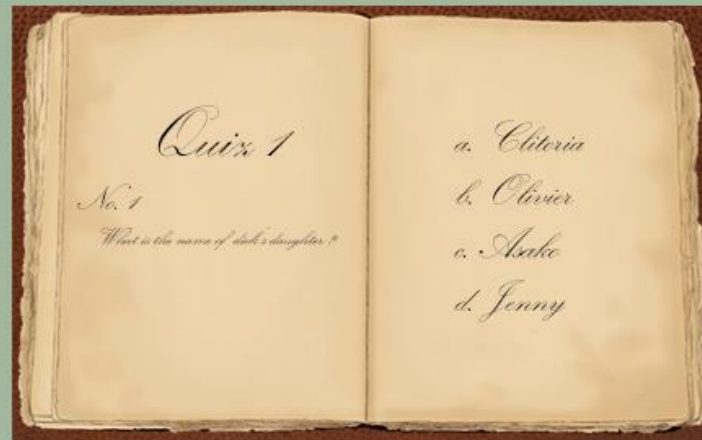 Quiz 1
No. 1
What is the name of dick's daughter ?
a. Clitoria
b. Olivier
c. Asako
d. Jenny